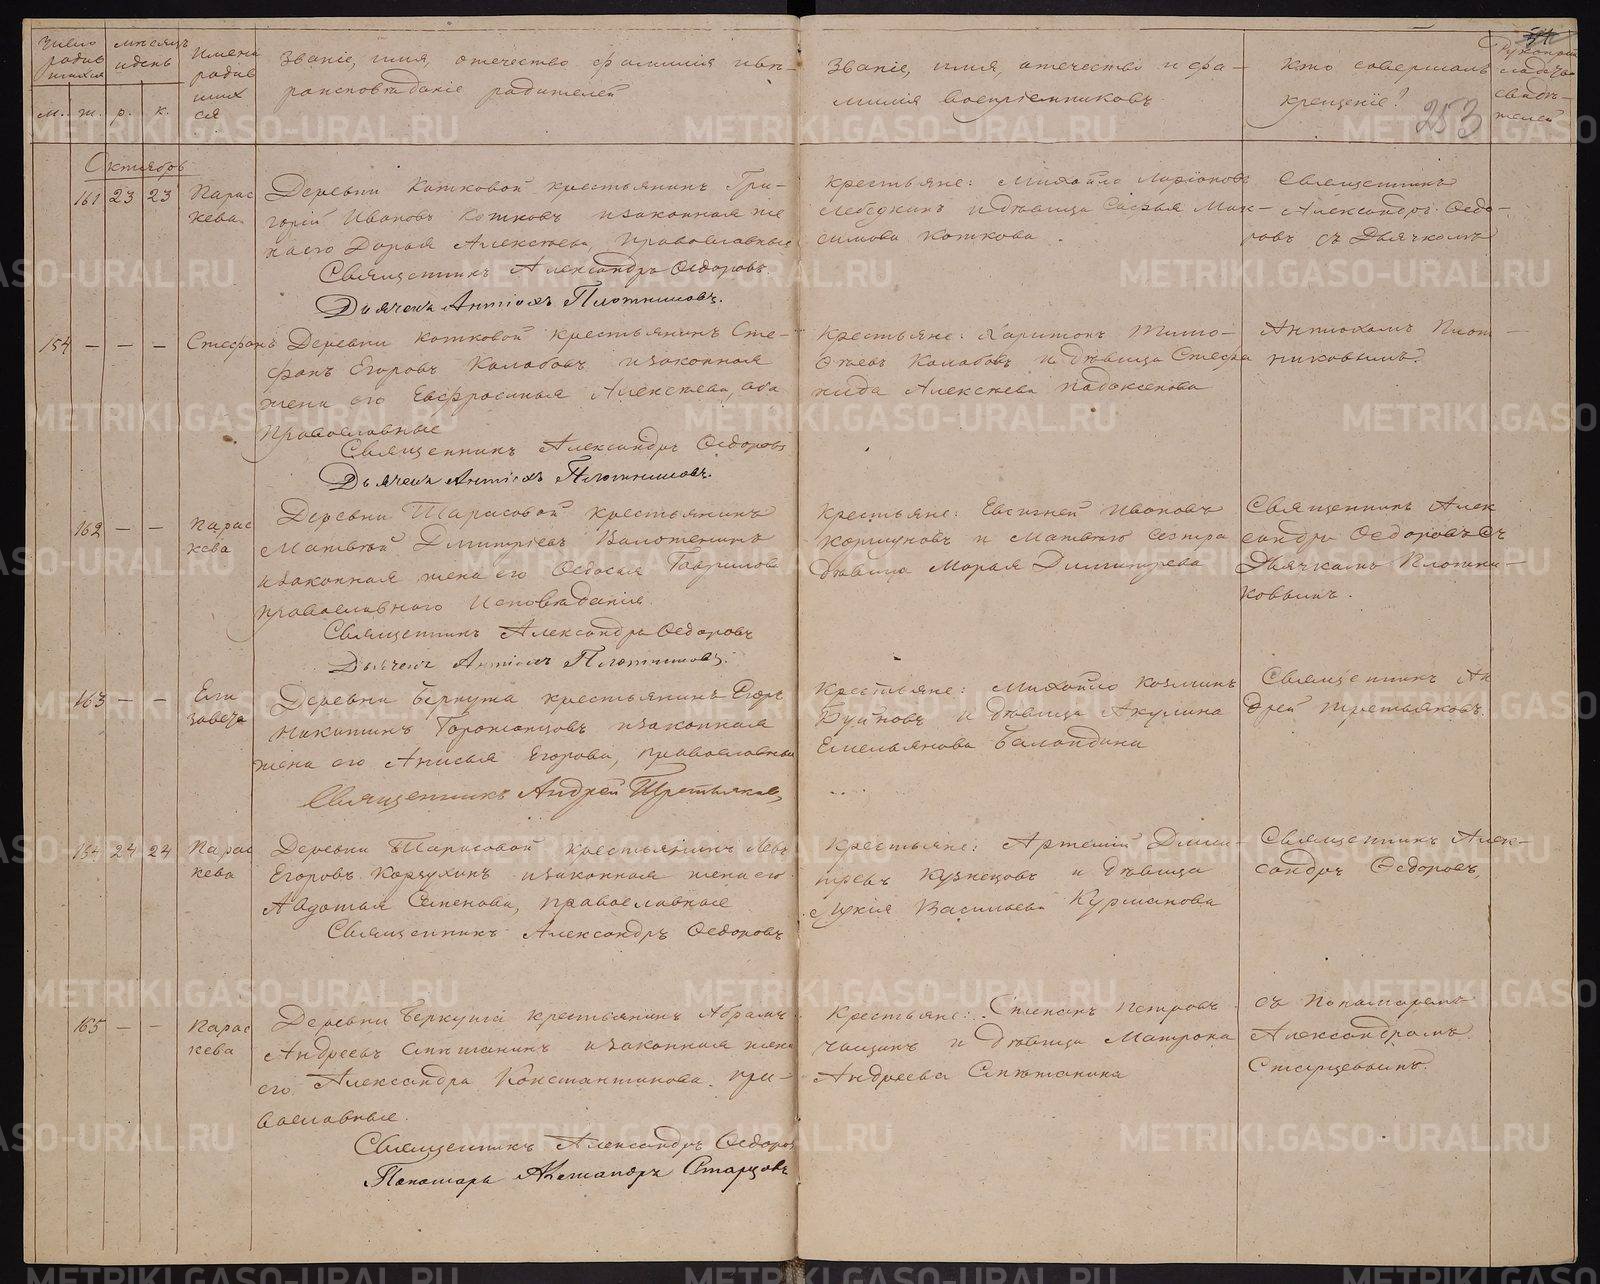 Число родившихся
мѣсяцъ и день
Имена родившихся
Званіе, имя, отечество фамилія и вѣ-
роисповѣданіе родителей
Званіе, имя, отечество и фа-
милія воспріемниковъ.
Кто совершалъ
крещеніе?
253
м. ж. р. к.
Октябрь
161 23 23 Парас
кева
Деревни Котковой крестьянинъ Гри-
горій Ивановъ Котковъ и законная же
на его Дарья Алексѣева, православные
Священникъ Александръ Ѳедоровъ.
Дьячекъ Антіохъ Плотниковъ.
Крестьяне: Михайло Ларіоновъ
Лебедкинъ и дѣвица Софья Мак-
симова Коткова.
Священникъ
Александръ Ѳедо-
ровъ съ Дьячкомъ
154 — — — Стефанъ
Деревни Котковой крестьянинъ Сте-
фанъ Егоровъ Калабовъ и законная
жена его Евфросинья Алексѣева, оба
православные
Священникъ Александръ Ѳедоровъ
Дьячекъ Антіохъ Плотниковъ.
Крестьяне: Харитонъ Тимо-
ѳеевъ Калабовъ и дѣвица Стефа
нида Алексѣева
Антіохомъ Плот-
никовымъ.
162 — — Парас
кева
Деревни Тарасовой крестьянинъ
Матвѣй Димитріевъ
и законная жена его Ѳедосья Гаврилова
православнаго исповѣданія
Священникъ Александръ Ѳедоровъ
Дьячекъ Антіохъ Плотниковъ.
Крестьяне: Евсигней Ивановъ
Коршуновъ и Матвѣю сестра
дѣвица Марья Димитрева
Священникъ Алек
сандръ Ѳедоровъ съ
Дьячкомъ Плотни-
ковымъ.
163 — — Ели
завета
Деревни Беркута крестьянинъ Егоръ
Никитинъ и законная
жена его Анисья Егорова, православные
Священникъ Андрей Третьяковъ
Крестьяне: Михайло Козминъ
Буйновъ и дѣвица Акулина
Емельянова Баландина
Священникъ Ан
дрей Третьяковъ.
164 24 24 Парас
кева
Деревни Тарасовой крестьянинъ Левъ
Егоровъ Карзухинъ и законная жена его
Авдотья Семенова, православные
Священникъ Александръ Ѳедоровъ
Крестьяне: Артемій Дими-
тревъ Кузнецовъ и дѣвица
Лукія Васильева Курманова
Священникъ Алек-
сандръ Ѳедоровъ,
165 — — Парас
кева
Деревни Беркута крестьянинъ Абрамъ
Андреевъ Спѣтанинъ и законная жена
его Александра Константинова. пра-
вославные.
Священникъ Александръ Ѳедоровъ
Пономарь Александръ Старцовъ
Крестьяне: Степанъ Петровъ
Чащинъ и дѣвица Матрона
Андреева Спѣтанина
съ Пономаремъ
Александромъ
Старцевымъ.
METRIKI.GASO-URAL.RU